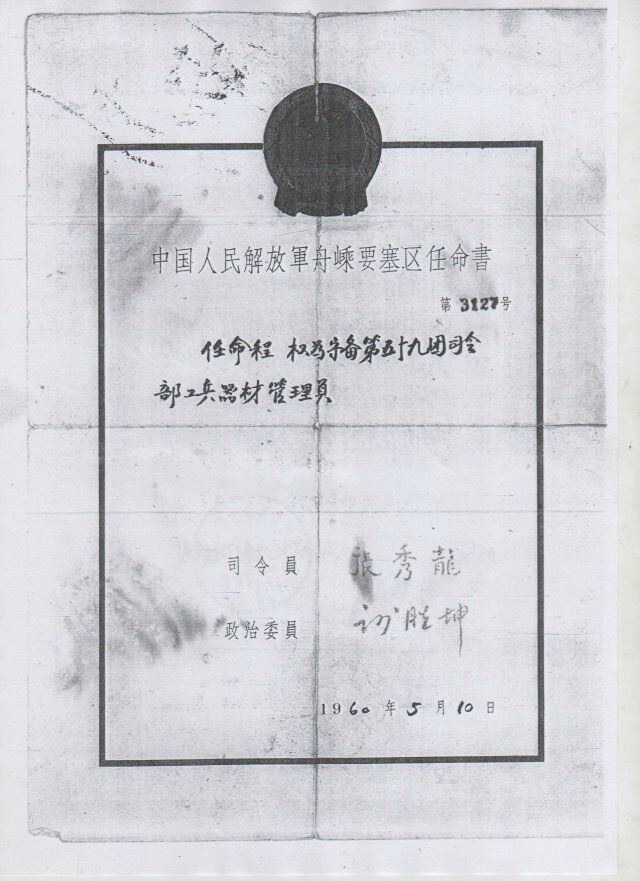 中国人民解放軍舟嵊要塞区任命書
第3127号
任命程 权为守备第五十九团司令
部工兵器材管理員
司令員 張秀龍
政治委員 胜坤
1960年5月10日